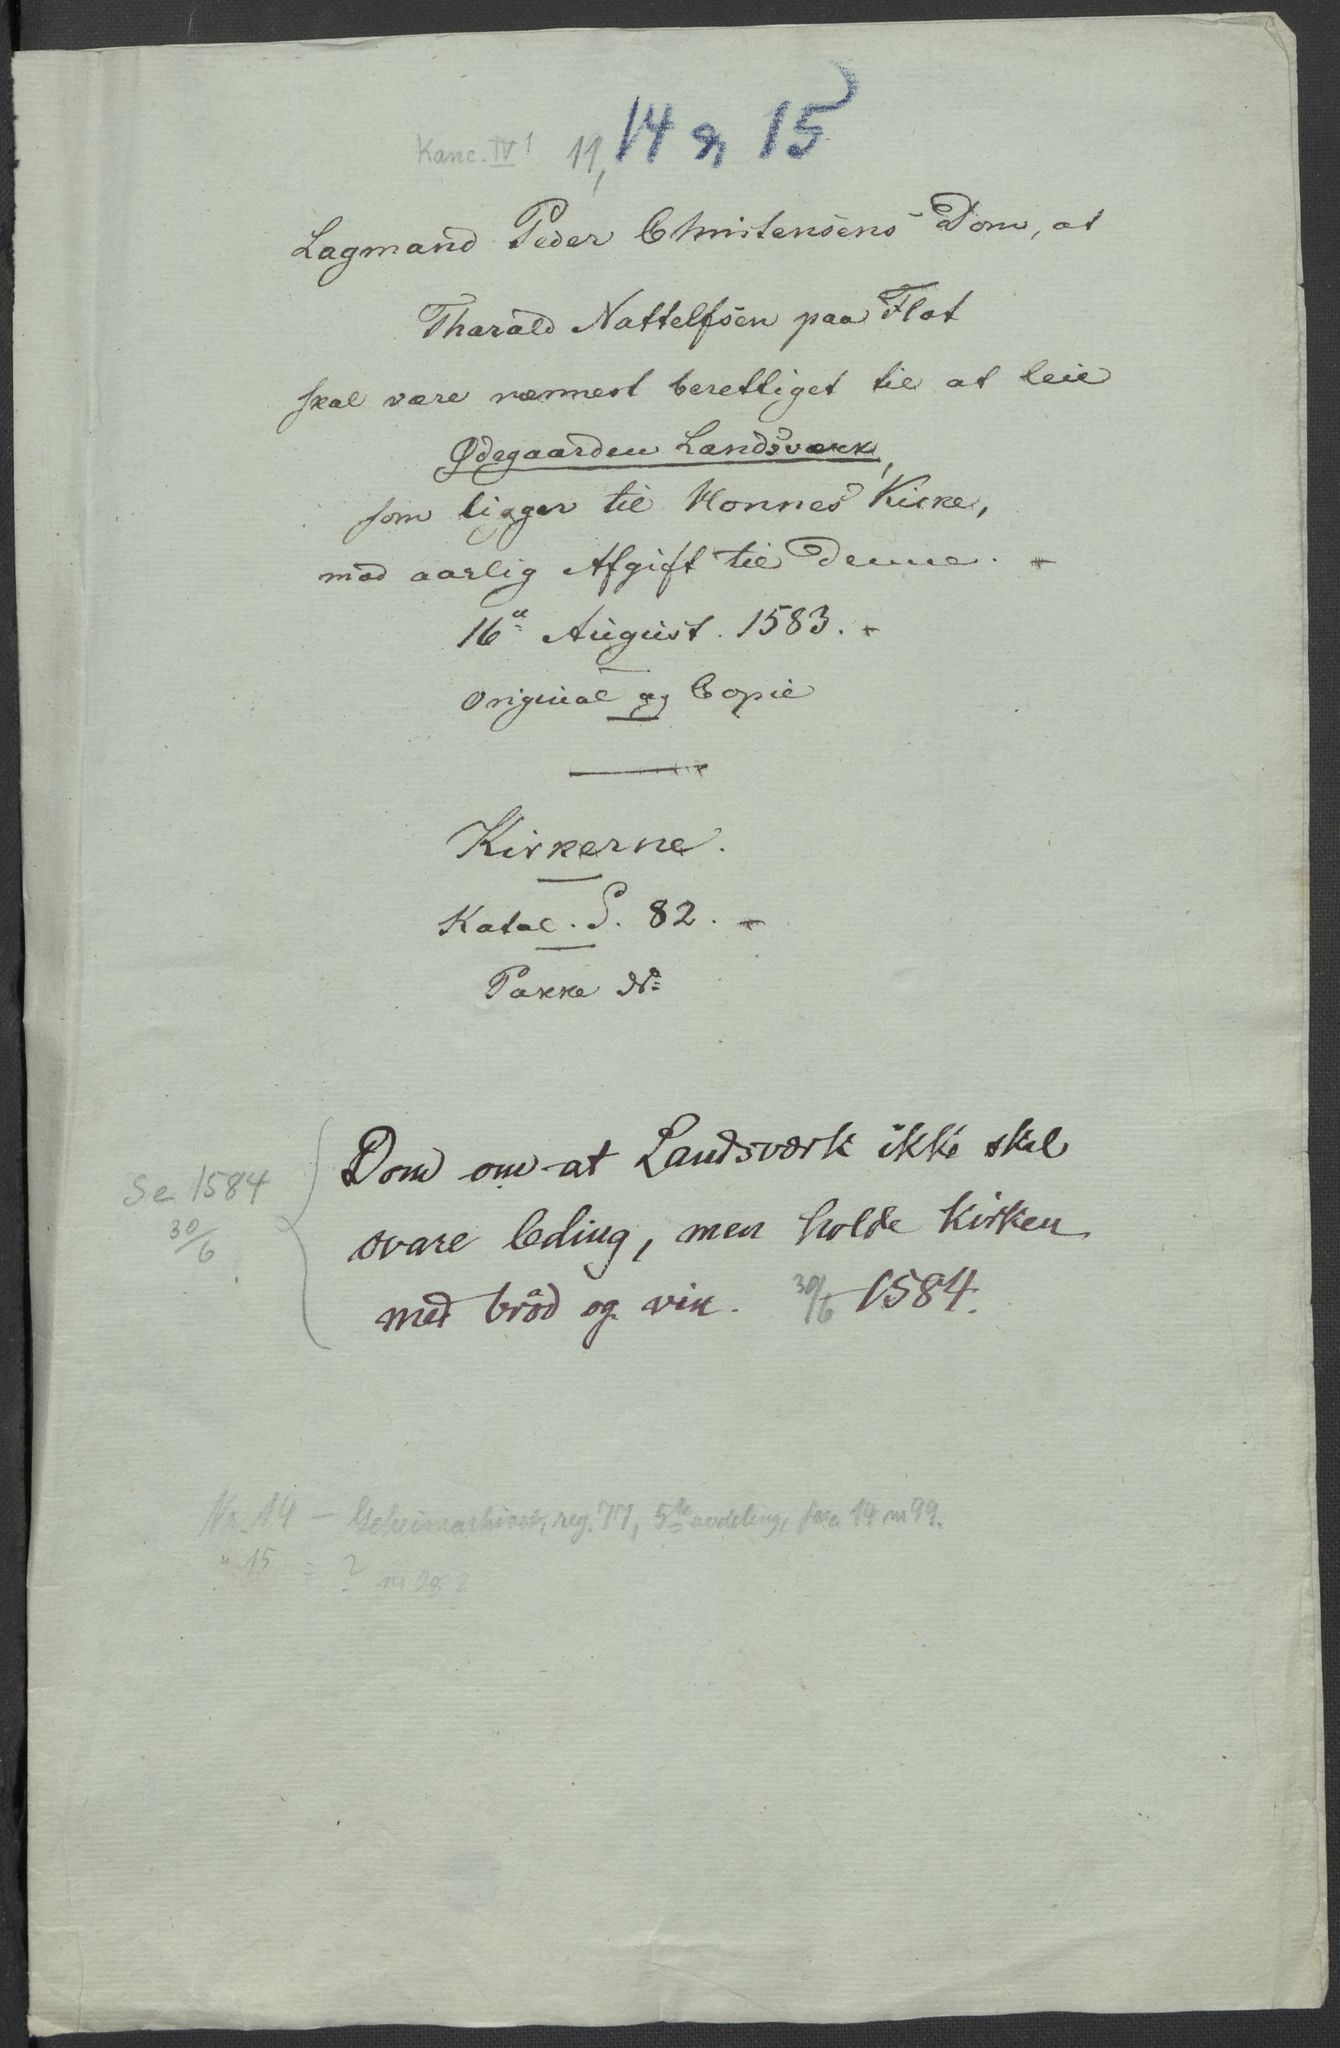 Kanc. IV 1 11, 14 & 15
Lagmand Peder Christensens Dom, at
Tharald Nattelfsen paa Flat
skal være nærmest berettiget til at leie
Ødegaarden Landsværk,
som ligger til Honnes Kirke,
mod aarlig Afgift til denne. -
16de August. 1583. -
Original og Copie
Kirkerne.
Katal. S. 82. -
Pakke No
Dom om at Landsværk ikke skal
Se 1584
svare leding, men holde kirken
30/6
med brød og vin. 30/6 1584.
Nr. 14 – Geheimearkivet, reg. 77, 5te avdeling, fasc. 14 nr 99.
" 15 = ?